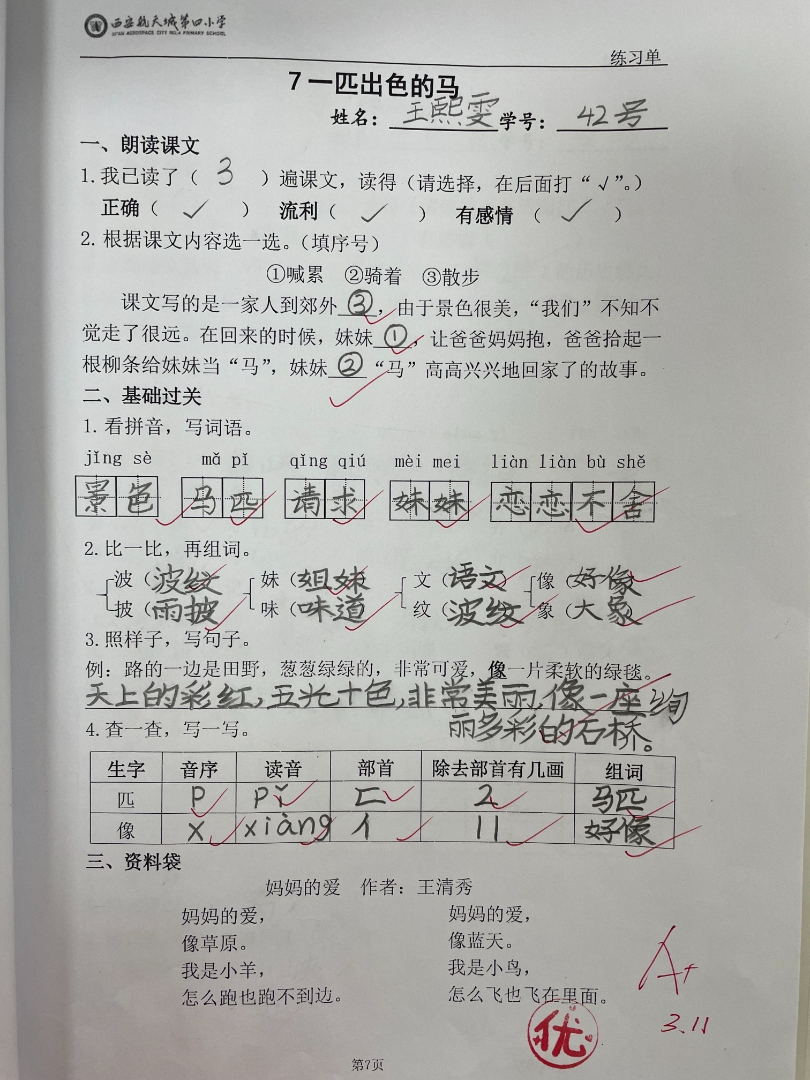 西安航天城第四小学
XI'AN AEROSPACE CITY NO.4 PRIMARY SCHOOL
练习单
7 一匹出色的马
姓名：王熙雯 学号：42号
一、朗读课文
1.我已读了（ 3 ）遍课文，读得（请选择，在后面打“√”。）
正确（ ✓ ） 流利（ ✓ ） 有感情 （ ✓ ）
2. 根据课文内容选一选。（填序号）
①喊累 ②骑着 ③散步
课文写的是一家人到郊外 ③ ，由于景色很美，“我们”不知不
觉走了很远。在回来的时候，妹妹 ① ，让爸爸妈妈抱，爸爸拾起一
根柳条给妹妹当“马”，妹妹 ② “马”高高兴兴地回家了的故事。
二、基础过关
1. 看拼音，写词语。
jǐng sè mǎ pǐ qǐng qiú mèi mei liàn liàn bù shě
景色 马匹 请求 妹妹 恋恋不舍
2.比一比，再组词。
波（波纹） 妹（姐妹） 文（语文） 像（好像）
披（雨披） 味（味道） 纹（波纹） 象（大象）
3.照样子，写句子。
例：路的一边是田野，葱葱绿绿的，非常可爱，像一片柔软的绿毯。
天上的彩红，五光十色，非常美丽，像一座绚
丽多彩的石桥。
4.查一查，写一写。
生字 音序 读音 部首 除去部首有几画 组词
匹 P pǐ 匚 2 马匹
像 X xiàng 亻 11 好像
三、资料袋
妈妈的爱 作者：王清秀
妈妈的爱， 妈妈的爱，
像草原。 像蓝天。
我是小羊， 我是小鸟，
怎么跑也跑不到边。 怎么飞也飞在里面。
A+
优
3.11
第7页